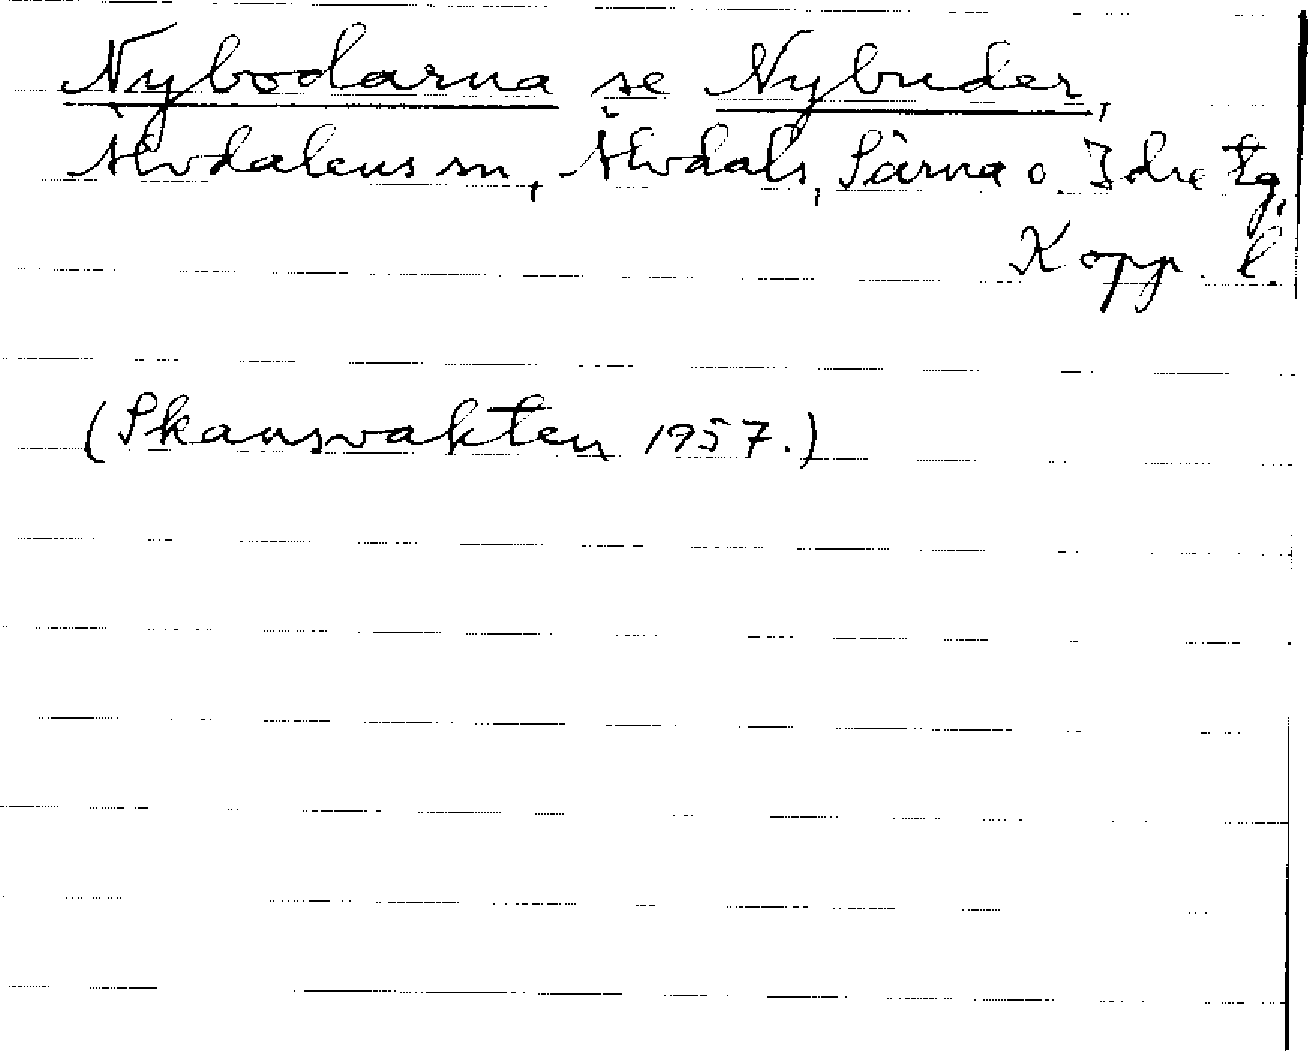 Nybodarna se Nybuder,
Älvdalens sn, Älvdals, Särna o. Idre tg,
Kopp. l.
(Skansvakten 1957.)